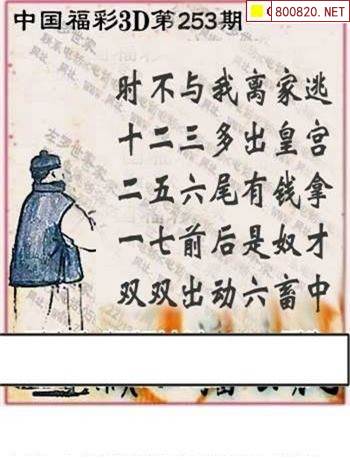 中国福彩3D第253期
800820.NET
时不与我离家逃
十二三多出皇宫
二五六尾有钱拿
一七前后是奴才
双双出动六畜中